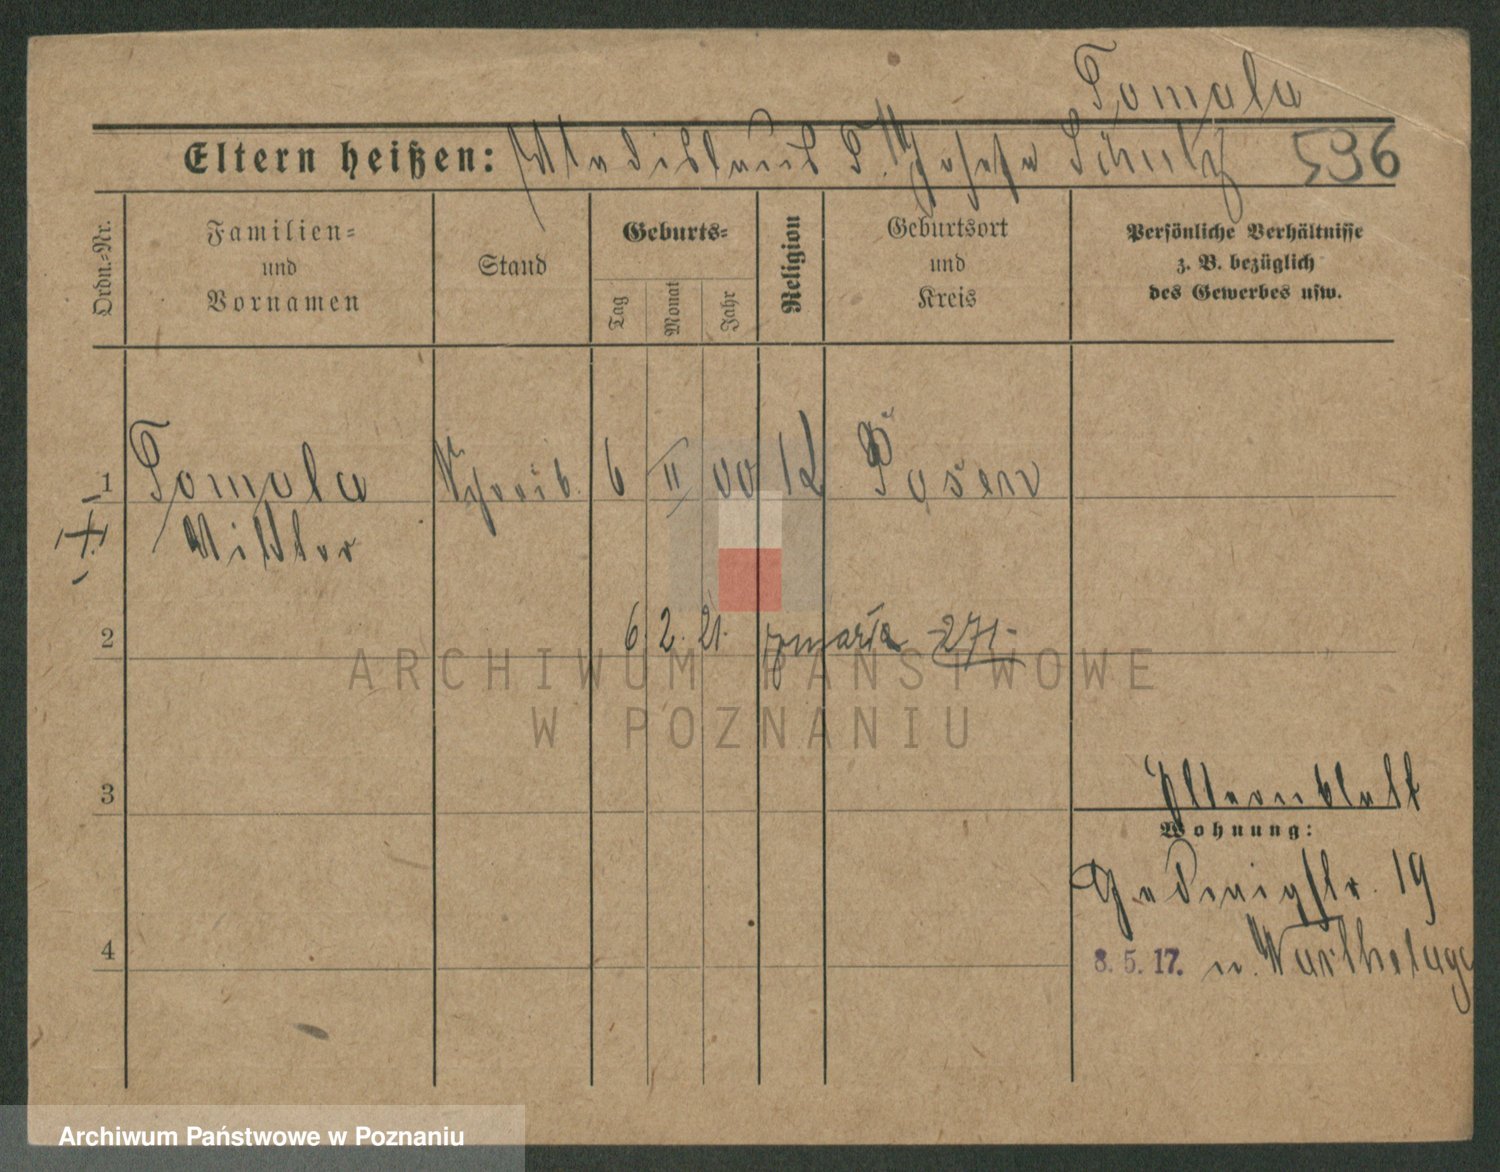 Tomala
Eltern heißen: Wladislaus T. u. Josefa Schulz 596
Ordn.-Nr.
Familien- und Vornamen
Stand
Geburts-
Tag
Monat
Jahr
Religion
Geburtsort und Kreis
Persönliche Verhältnisse z. B. bezüglich des Gewerbes usw.
1 Tomala Schreib. 6 II 00 K Posen
Viktor
2 6. 2. 21. zmarła 271
3
Elternblatt
Wohnung:
19
4
8. 5. 17. n. Warthelager
ARCHIWUM PAŃSTWOWE
W POZNANIU
Archiwum Państwowe w Poznaniu